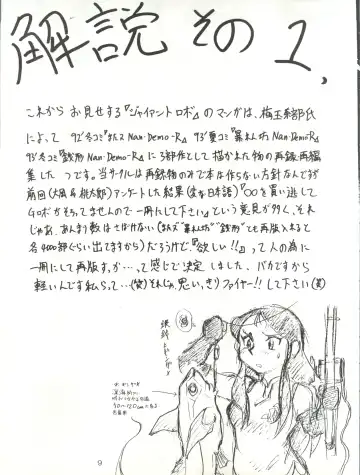 解説 その 1、
これから お見せする『ジャイアントロボ』のマンガは、梅玉奈部氏
によって 92'冬コミ『またス Nan-Demo-R』 93'夏コミ『暴れん坊 Nan-Demo-R』
93'冬コミ『鉄節 Nan-Demo-R』に3部作として描かれた物の再録・再編
集した つです。当サークルは再録物のみで本は作らない方針なんですが
前回(大風&桃太郎)アンケートした結果(変な日本語)『○○を買い逃して
Gロボがそろってませんので一冊にして下さい』という意見が多く、それ
じゃあ、あんまり数はさばけない(またス"暴れん坊""鉄節"とも再版入れると
各4000部くらい出てますから)だろうけど、『欲しい!!』って人の為に
一冊にして再版すっか…って感じで決定しました。バカですから
軽いんです私らって…(笑)それじゃ、思いっきりファイヤー!!して下さい(笑)
9